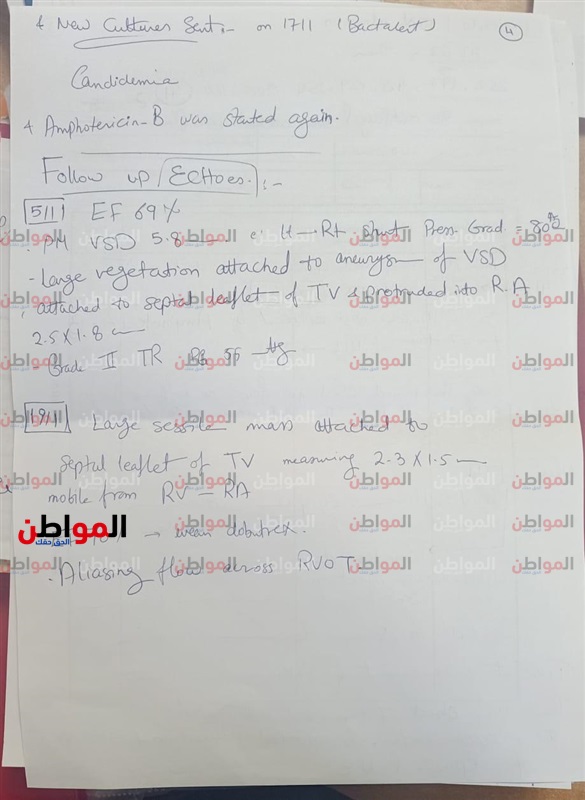 + New Cultures Sent:- on 17/1 (Bactalert) 4
Candidemia
+ Amphotericin-B was started again.
Follow up Echoes:-
5/1 EF 69%
PM VSD 5.8 Lt → Rt shunt Press. Grad. = 80
- Large vegetation attached to aneurysm of VSD
, attached to septal leaflet of TV & protruded into R.A
2.5 X 1.8 cm
- Grade II TR 55
19/1 Large sessile mass attached to
septal leaflet of TV measuring 2.3 X 1.5 cm
mobile from RV – RA
→ wean dobutrex.
. Aliasing flow across RVOT.
المواطن